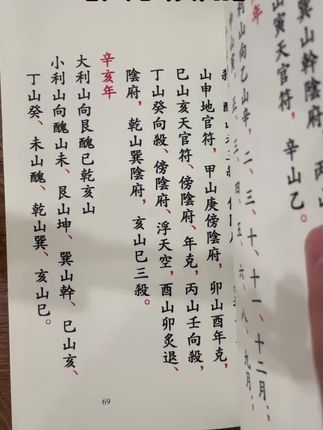 巽山幹、
山寅天官符，辛山乙。
年
利山向乙山辛，二、三、十、十一、十二月；
三、四、五、六、八、九月，
山申地官符，甲山庚傍陰府，卯山酉年克，
巳山亥天官符、傍陰府、年克，丙山壬向殺，
丁山癸向殺、傍陰府、浮天空，酉山卯炙退、
陰府，乾山巽陰府，亥山巳三殺。
辛亥年
大利山向艮醜巳乾亥山
小利山向醜山未、艮山坤、巽山幹、巳山亥、
丁山癸、未山醜、乾山巽、亥山巳。
69